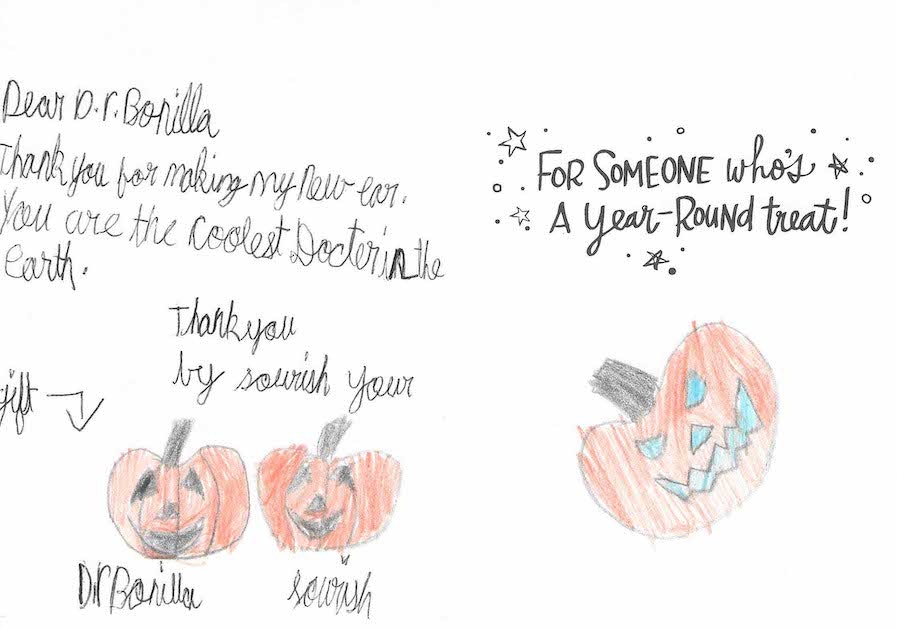 Dear D.r. Bonilla
Thank you for making my new ear.
You are the coolest Docter in the
earth.
Thank you
by sourish your
gift
Dr Bonilla
sourish
FOR SOMEONE who's
A year-ROUND treat!